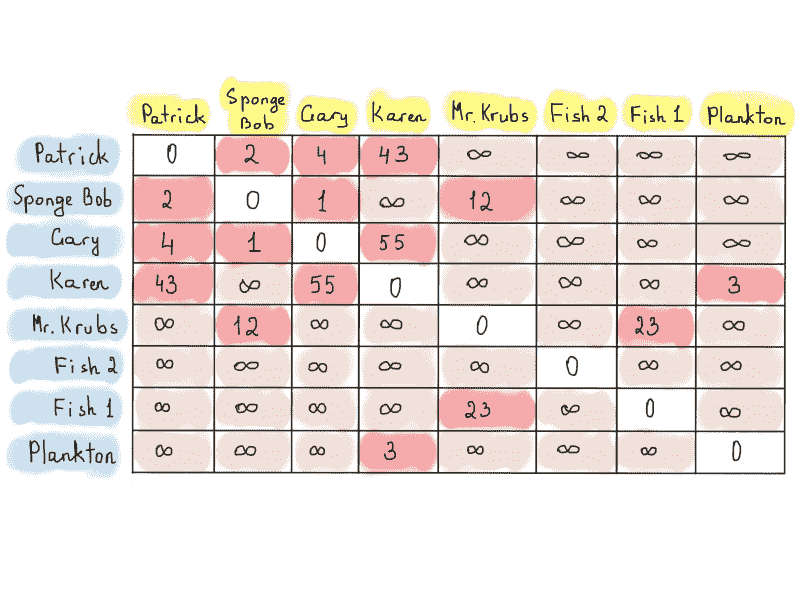 Patrick Sponge Bob Gary Karen Mr. Krubs Fish 2 Fish 1 Plankton
Patrick 0 2 4 43 ∞ ∞ ∞ ∞
Sponge Bob 2 0 1 ∞ 12 ∞ ∞ ∞
Gary 4 1 0 55 ∞ ∞ ∞ ∞
Karen 43 ∞ 55 0 ∞ ∞ ∞ 3
Mr. Krubs ∞ 12 ∞ ∞ 0 ∞ 23 ∞
Fish 2 ∞ ∞ ∞ ∞ ∞ 0 ∞ ∞
Fish 1 ∞ ∞ ∞ ∞ 23 ∞ 0 ∞
Plankton ∞ ∞ ∞ 3 ∞ ∞ ∞ 0